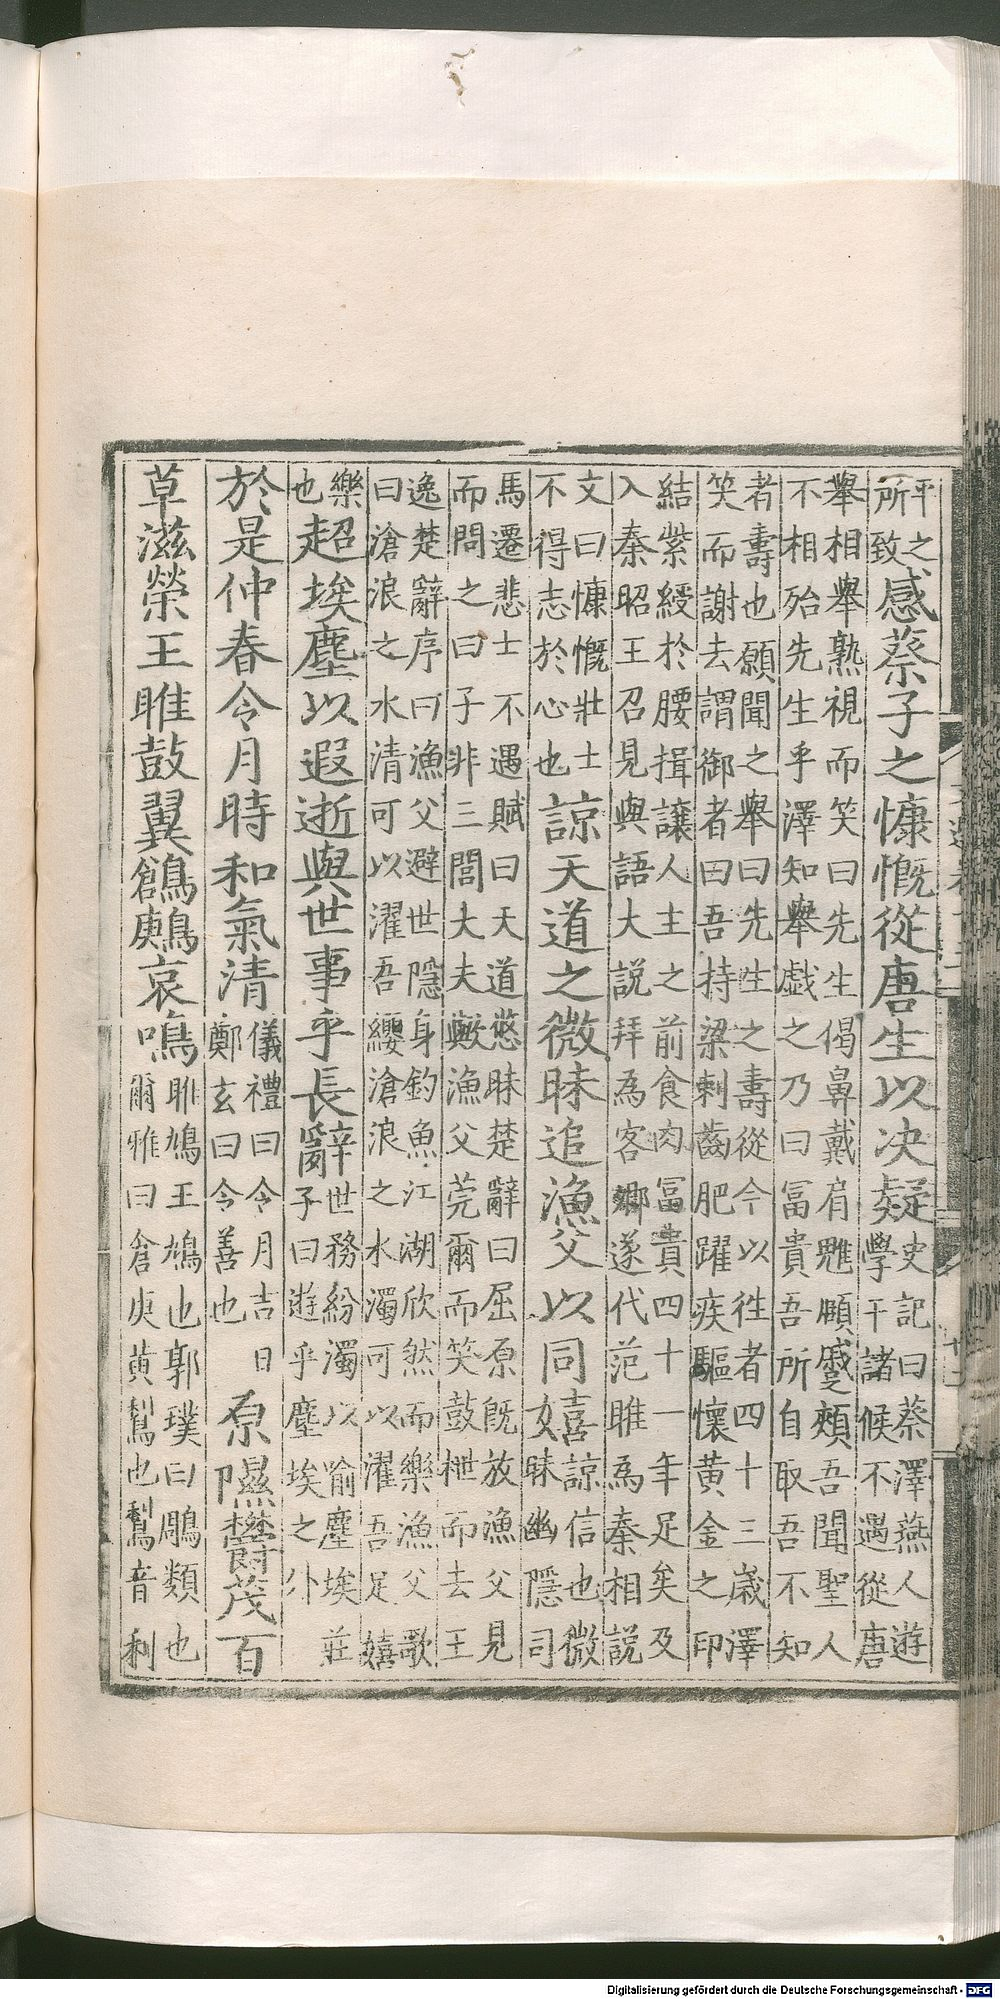 平之所致感蔡子之慷慨從唐生以决疑史記曰蔡澤燕人遊學干諸侯不遇從唐
舉相舉熟視而笑曰先生偈鼻戴肩魋蹙吾聞聖人
不相殆先生乎澤知舉戲之乃曰冨貴吾所自取吾不知
者壽也願聞之舉曰先生之壽從今以徃者四十三歲澤
笑而謝去謂御者曰吾持梁剌齒肥躍疾驅懷黃金之印
結紫綬於腰揖讓人主之前食肉冨貴四十一年足矣及
入秦昭王召見與語大說拜為客卿遂代范雎為秦相說
文曰慷慨壯士不得志於心也諒天道之微昧追漁父以同嬉諒信也微昧幽隱司
馬遷悲士不遇賦曰天道悠昧楚辭曰屈原旣放漁父見
而問之曰子非三閭大夫歟漁父莞爾而笑鼓枻而去王
逸楚辭序曰漁父避世隱身釣魚江湖欣然而樂漁父歌
曰滄浪之水清可以濯吾纓滄浪之水濁可以濯吾足嬉
樂也超埃塵以遐逝與世事乎長辭世務紛濁以喻塵埃莊子曰遊乎塵埃之外
於是仲春令月時和氣清儀禮曰令月吉日鄭玄曰令善也原隰鬱茂百
草滋榮王雎鼓翼鶬鶊哀鳴雎鳩王鳩也郭璞曰鵰類也爾雅曰倉庚黃鵹也鵹音利
Digitalisierung gefördert durch die Deutsche Forschungsgemeinschaft - DFG